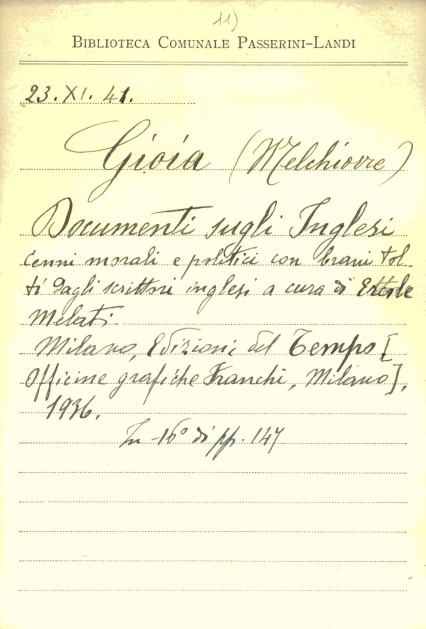 11)
BIBLIOTECA COMUNALE PASSERINI-LANDI
23. XI. 41.
Gioia (Melchiorre)
Documenti sugli Inglesi
Cenni morali e politici con brani tol-
ti dagli scrittori inglesi a cura di Ettore
Melati.
Milano, Edizioni del Tempo [
Officine grafiche Franchi, Milano],
1936.
In -16° di pp. 147